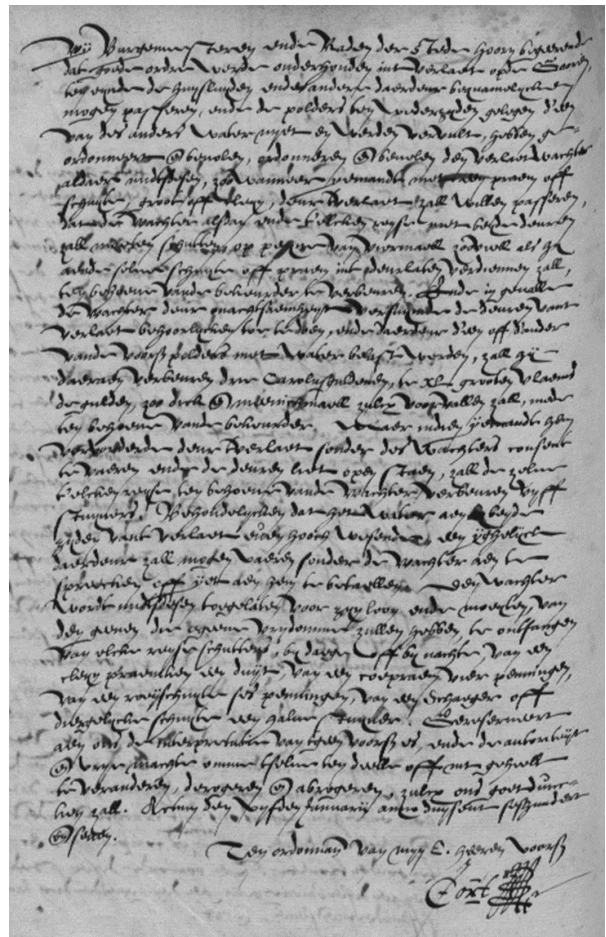 Wij Burgemeesteren ende Raden der Stede Hoorn begeerende
dat goede ordre werde onderhouden int verlaet opde Gooren,
ten eynde de huysluiden ende andere daerdeure bequamelycken
mogen passeren, ende de polders ten wederzyden gelegen d'een
van des anders water nyet en werden vervult, hebben ge-
ordonneert & bevolen, ordonneren & bevelen den verlaetwachter
aldaer mitsdesen, zoo wanneer yemandt met een praem off
schuyte, groot off cleyn, deur tverlaet zall willen passeren,
dat de wachter alsdan ende telcken reyse met beyde deuren
zall moeten schutten op peyne van viermaell zooveell als hy
aende selve schuyte off praem int deurlaten verdienen zall,
ten behoeve vande bekeurder te verbeuren. Ende in gevalle
de wachter deur onachtsaemheyt versuymde de deuren vant
verlaet behoorlycken toe te doen, ende daerdeur d'een off d'ander
vande voorsz polders met water belast werden, zall hy
daeraen verbeuren drie Carolusguldenen, te XL grooten vlaems
de gulden, zoo dick & menichmaell zulcx voorvallen zall, mede
ten behoeve vande bekeurder. Maer indien yemandt hem
vervoorderde deur tverlaet sonder des wachters consent
te vaeren ende de deuren liet open staen, zall de zelve
telcken reyse ten behoeve vande wachter verbeuren vyff
stuyvers. Behoudelycken dat het water aen beyde
zyden vant verlaet even hooch wesende, een yghelyck
daerdeure zall mogen vaeren sonder de wachter aen te
spreecken off yet aen hem te betaellen. Den wachter
wordt mitsdesen toegelaten voor zyn loon ende moeyten, van
den geenen die egeene vrydomme zullen hebben, te ontfangen
van elcke reyse schuttens, by daegen off by nachte, van een
cleyn praemken een duyt, van een coepraem vier penningen,
van een roeyschuyte ses penningen, van een schaeger off
diergelycke schuyte een halve stuyver. Gereserveert
aen ons de interpretatie van tgeen voorsz es, ende de autoriteyt
& vrye machte omme tselve ten deele off int geheell
te veranderen, derogeren & abrogeren, zulcx ons goetduncken
zall. Actum den vyfden January anno duysent seshondert
& seven.
Ten ordonnantie van myn E. Heeren voorsz